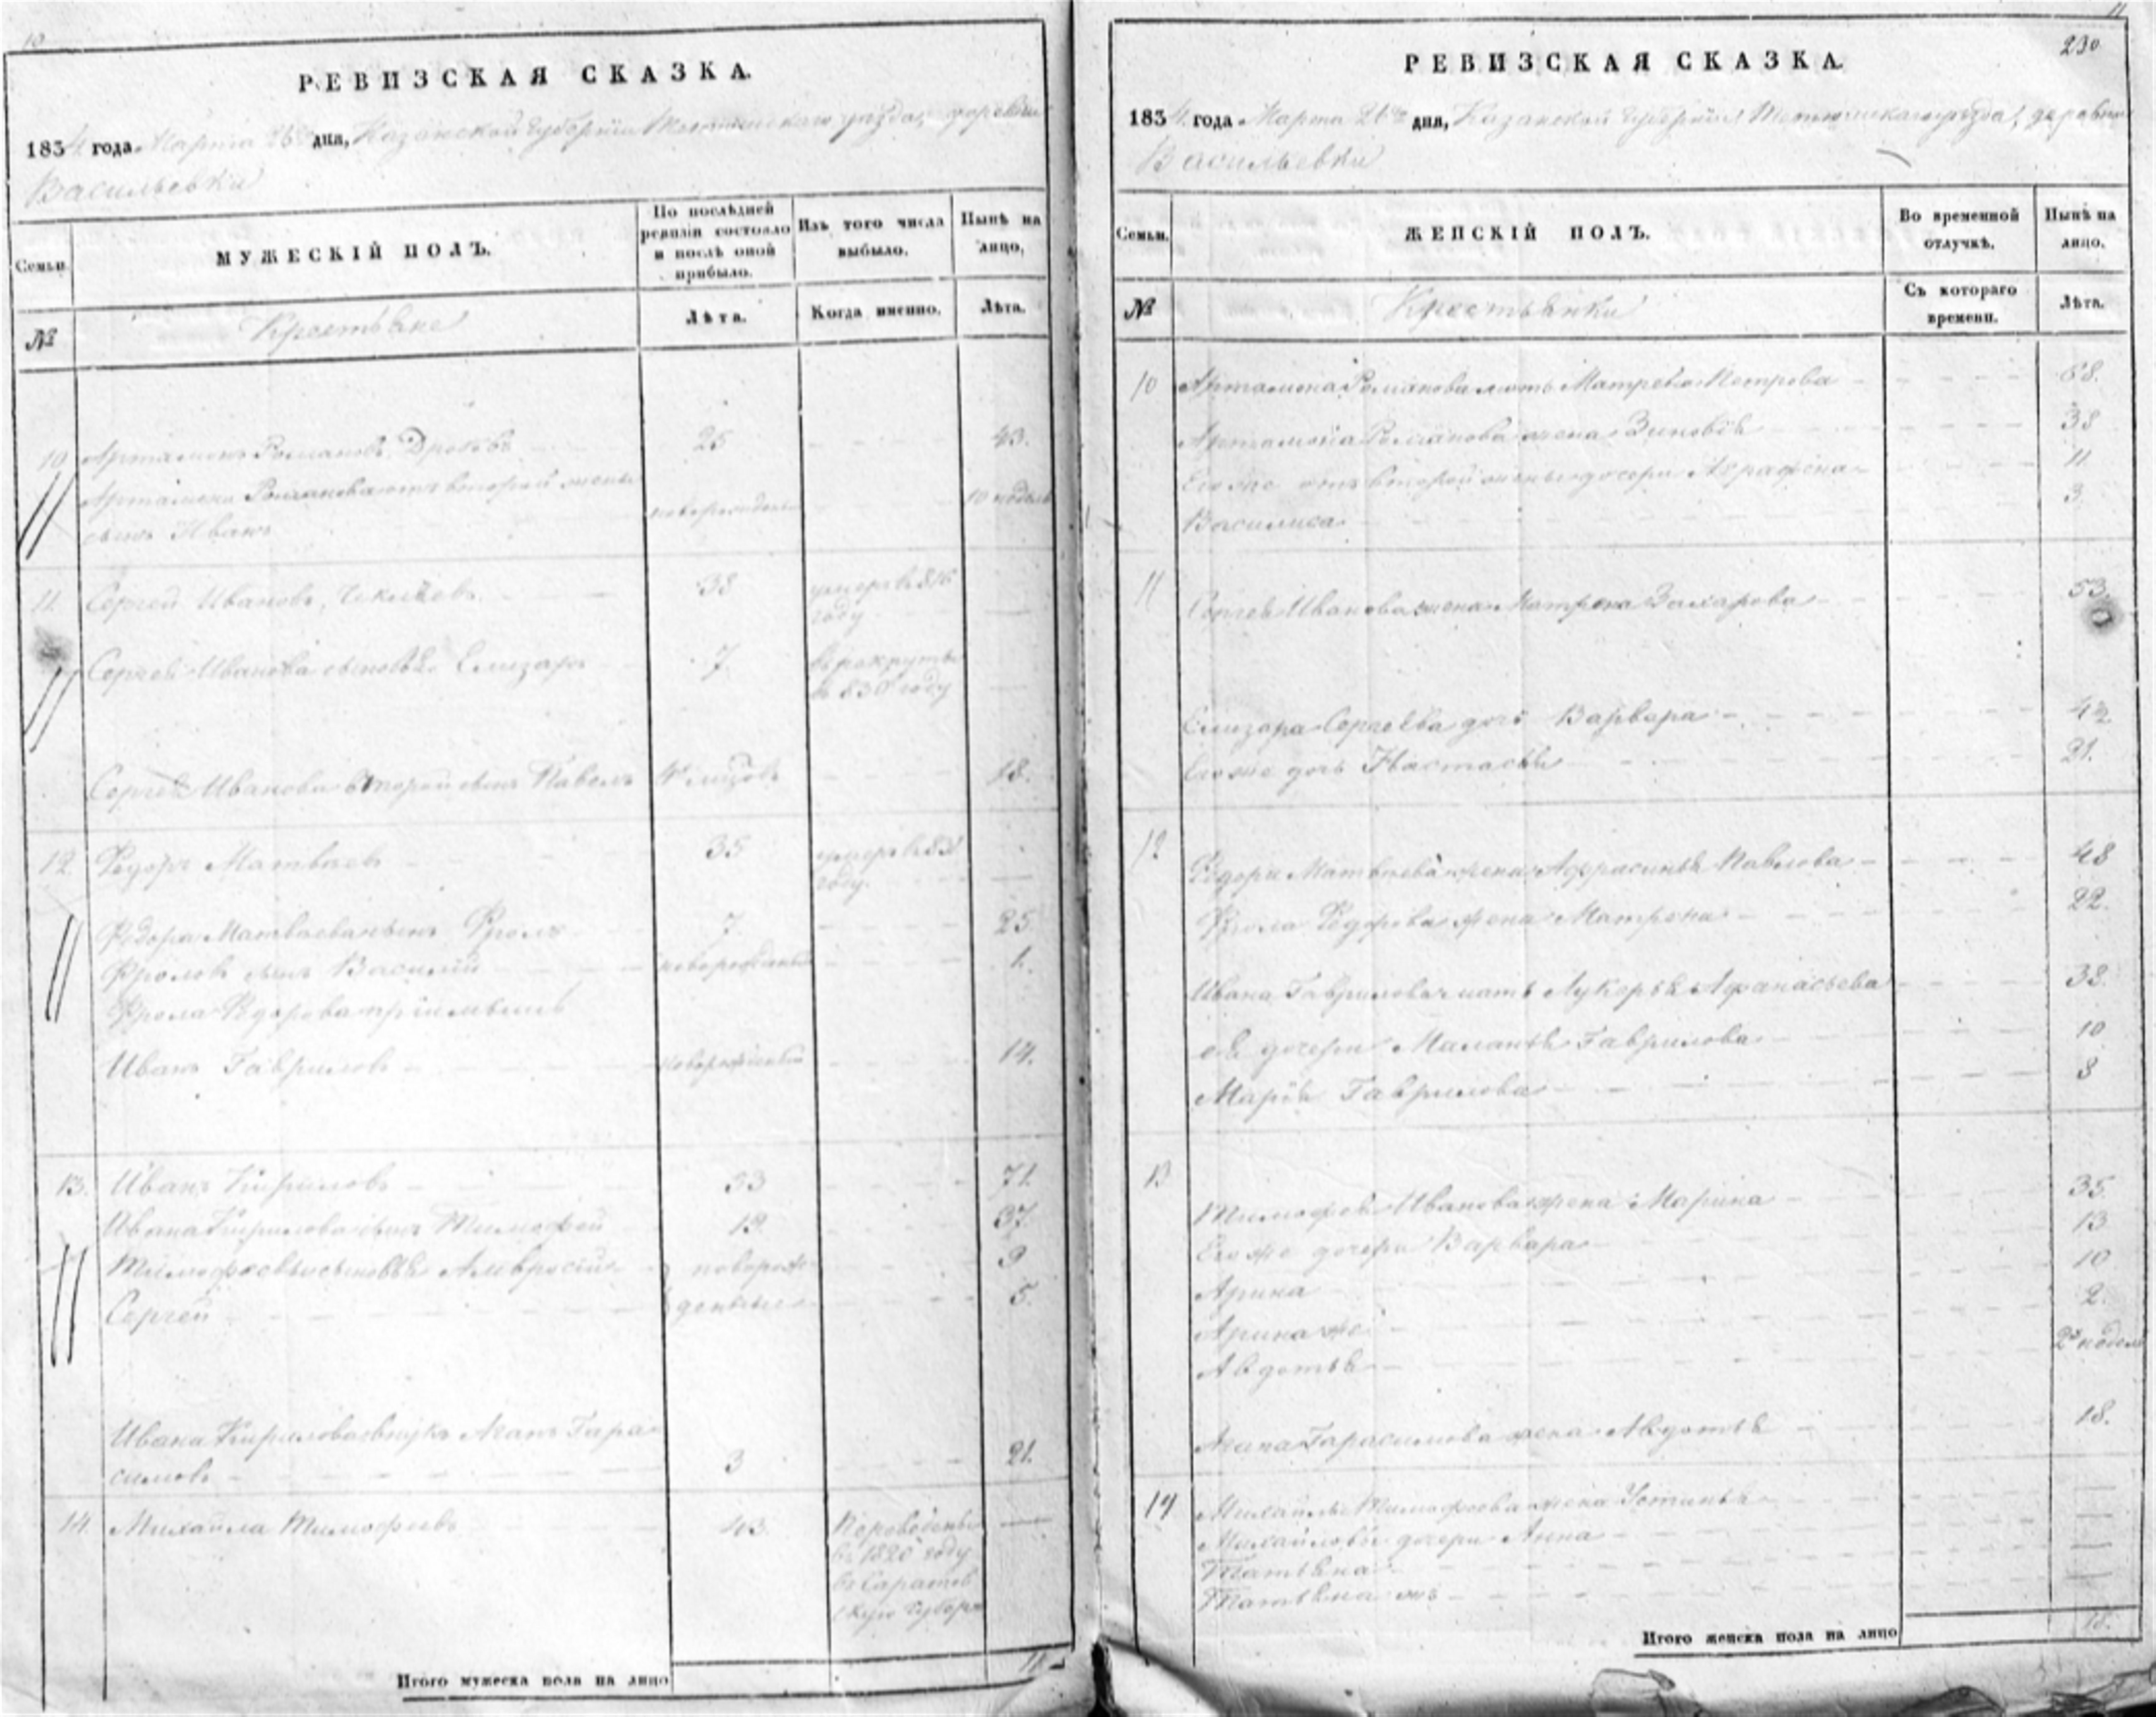 10
РЕВИЗСКАЯ СКАЗКА.
1834 года Марта 26го дня, Казанской Губернии Тетюшскаго уезда, деревни
Васильевки
Семьи.
МУЖЕСКІЙ ПОЛЪ.
По послѣдней ревизіи состояло и послѣ оной прибыло.
Изъ того числа выбыло.
Нынѣ на лицо.
№
Крестьяне
Лѣта.
Когда именно.
Лѣта.
10 Артамонъ Романовъ 25 43.
Артамона Романова отъ второй жены
сынъ Иванъ новорожденъ 10 недель
11. Сергей Ивановъ, 38 умеръ в 816
году
Сергея Иванова сыновья Елизаръ 7. в рекруты
в 830 году
Сергея Иванова второй сынъ Павелъ 18.
12. Федоръ Матвеевъ 35 умеръ в 831
году.
Федора Матвеева сынъ Фролъ 7. 25
Фролов сынъ Василий новорожденный 1.
Фрола Федорова
Иванъ Гавриловъ новорожденный 14.
13. Иванъ Кириловъ 53 71.
Ивана Кирилова сынъ Тимофей 19. 37.
Тимофеевы сыновья Амвросий новорож- 9
Сергей денные 5.
Ивана Кирилова внукъ Агапъ Гара
симовъ 3 21.
14. Михайла Тимофеевъ 43. Переведенъ
въ 1820 году
въ Саратов
скую Губерн
Итого мужеска пола на лицо
11
230
РЕВИЗСКАЯ СКАЗКА.
1834 года Марта 26го дня, Казанской Губернии Тетюшскаго уезда, деревни
Васильевки
Семьи.
ЖЕНСКІЙ ПОЛЪ.
Во временной отлучкѣ.
Нынѣ на лицо.
№
Крестьянки
Съ котораго времени.
Лѣта.
10 Артамона Романова мать Матрена Петрова 68.
Артамона Романова жена Зиновья 38
Его же отъ второй жены дочери Аграфена 11
Василиса 3.
11 Сергея Иванова жена Матрена Захарова 53.
Елизара Сергеева Варвара 42.
Его же дочь Настасья 21.
12 Федора Матвеева жена Афросинья Павлова 48
Фрола Федорова жена Матрена 22.
Ивана Гаврилова мать Лукерья Афанасьева 38.
её дочери Маланья Гаврилова 10
Марья Гаврилова 8
13 Тимофея Иванова жена Марина 35.
Его же дочери Варвара 13
Арина 10
Арина же 2.
Авдотья недель
Агапа Гарасимова жена Авдотья 18.
14 Михайлы Тимофеева жена Устинья
Михайловы дочери Анна
Татьяна
Татьяна жъ
Итого женска пола на лицо